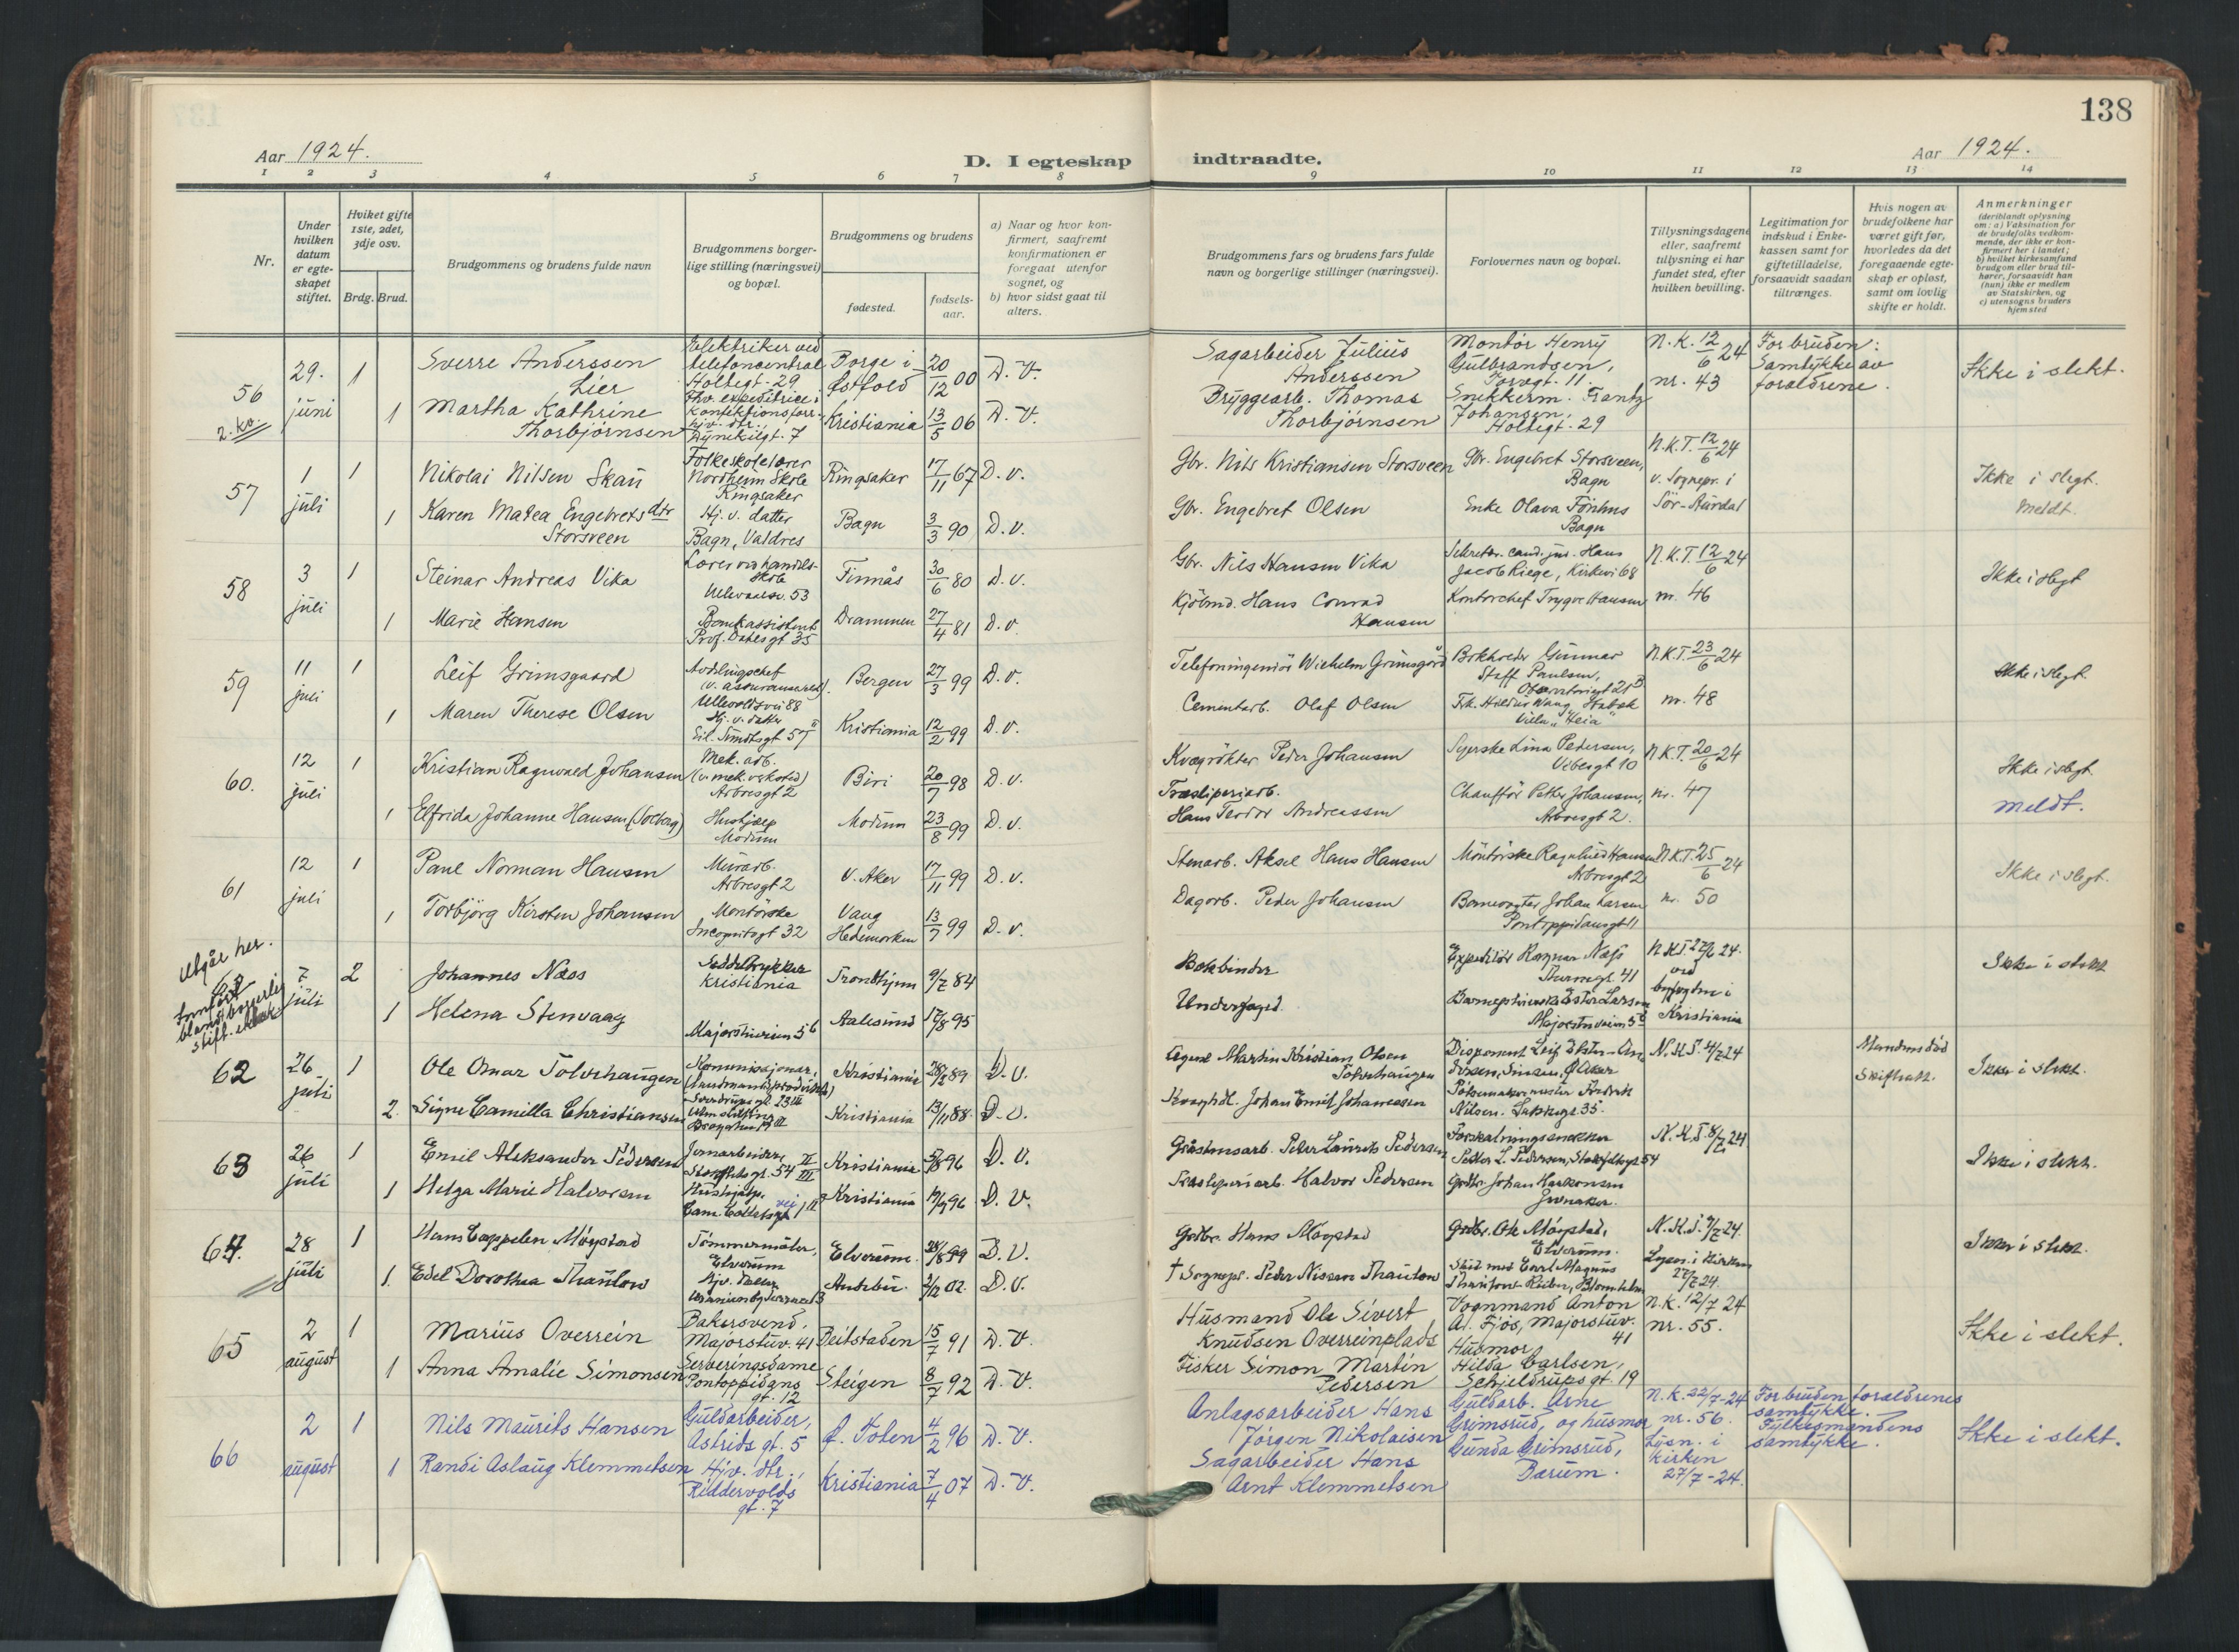 138
Aar 1924.
D. I egteskap indtraadte.
Aar 1924.
1 2 3 4 5 6 7 8 9 10 11 12 13 14
Nr.
Under hvilken datum er egteskapet stiftet.
Hviket gifte 1ste, 2det, 3dje osv.
Brdg. Brud.
Brudgommens og brudens fulde navn
Brudgommens borgerlige stilling (næringsvei) og bopæl.
Brudgommens og brudens
fødested.
fødselsaar.
a) Naar og hvor konfirmert, saafremt konfirmationen er foregaat utenfor sognet, og
b) hvor sidst gaat til alters.
Brudgommens fars og brudens fars fulde navn og borgerlige stillinger (næringsvei).
Forlovernes navn og bopæl.
Tillysningsdagene eller, saafremt tillysning ei har fundet sted, efter hvilken bevilling.
Legitimation for indskud i Enkekassen samt for giftetilladelse, forsaavidt saadan tiltrænges.
Hvis nogen av brudefolkene har været gift før, hvorledes da det foregaaende egteskap er opløst, samt om lovlig skifte er holdt.
Anmerkninger
(deriblandt oplysning om: a) Vaksination for de brudefolks vedkommende, der ikke er konfirmert her i landet; b) hvilket kirkesamfund brudgom eller brud tilhører, forsaavidt han (hun) ikke er medlem av Statskirken, og c) utensogns bruders hjemsted
56 2. ko. 29. juni 1 Sverre Anderssen Lier Elektriker ved telefoncentral Holtegt. 29. Borge i Østfold 20/12 00 D. V. Sagarbeider Julius Anderssen Montør Henry Gulbrandsen, Torvgt. 11. N. K. 12/6 24 nr. 43 For bruden: Samtykke av forældrene. Ikke i slekt.
1 Martha Kathrine Thorbjørnsen fhv. expeditrice i konfektionsforr. hjv. dtr., Dynekilgt. 7 Kristiania 13/5 06 D. V. Bryggearb. Thomas Thorbjørnsen Snekkerm. Frantz Johansen, Holtegt. 29
57 1 juli 1 Nikolai Nilsen Skau Folkeskolelærer Nordheim Skole Ringsaker Ringsaker 17/11 67 D. v. Gbr. Nils Kristiansen Storsveen Gbr. Engebret Storsveen, Bagn N.K.T. 12/6 24 v. Sognepr. i Sør-Aurdal Ikke i slegt. Meldt.
1 Karen Matea Engebretsdtr Storsveen Hj. v. datter Bagn, Valdres Bagn 3/3 90 D. v. Gbr. Engebret Olsen Enke Olava Fönhus Bagn
58 3 juli 1 Steinar Andreas Vika Lærer ved handelsskole Ullevaalsv. 53 Finnås 30/6 80 D. v. Gbr. Nils Hansen Vika Sekretær. cand. jur. Hans Jacob Riege, Kirkevei 68 N.K.T. 12/6 24 nr. 46 Ikke i slegt
1 Marie Hansen Bankassistent Prof. Dahlsgt 35 Drammen 27/4 81 D. v. Kjöbmd. Hans Conrad Hansen Kontorchef Trygve Hansen
59 11 juli 1 Leif Grimsgaard Avdelingschef Ullevoldsvei 88 Bergen 27/3 99 D. v. Telefoningeniör Wilhelm Grimsgård Bokholder Gunnar Steff Paulsen, N.K.T. 23/6 24 nr. 48 Ikke i slegt.
1 Maren Therese Olsen Hj. v. datter Eil. Sundtsgt 57 II Kristiania 12/2 99 D. v. Cementarb. Olaf Olsen Frk. Hildur Wang, Stabæk Villa "Heia"
60. 12 juli 1 Kristian Ragnvald Johansen Mek. arb. (v. mek. verksted) Arbosgt 2 Biri 20/7 98 D. v. Kvægrökter Peder Johansen Syerske Lina Pedersen, Vibesgt 10 N.K.T. 20/6 24 nr. 47 Ikke i slegt. Meldt.
1 Elfrida Johanne Hansen (Solberg) Hushjælp Modum Modum 23/8 99 D. v. Træsliperiarb. Hans Teodor Andreassen Chauffør Petter Johansen, Arbosgt 2.
61 12 juli 1 Paul Norman Hansen Murarb. Arbosgt 2 V. Aker 17/11 99 D. v. Stenarb. Aksel Hans Hansen Möntörske Ragnhild Hansen Arbosgt 2 N.K.T. 25/6 24 nr. 50 Ikke i slegt.
1 Torbjörg Kirsten Johansen Montörske Incognitogt 32 Vang Hedemarken 13/7 99 D. v. Dagarb. Peder Johansen Banevogter Johan Larsen Pontoppidansgt 11
Utgår her. 62 Innført blandt borgerlig stift. ektesk. 7 juli 2 Johannes Næss Kristiania Trondhjem 9/7 84 Bokbinder Expeditör Ragnar Næss Theresgt. 41 N.K.T. 27/6 24. ved byfogden i Kristiania Ikke i slekt
1 Helena Stenvaag Majorstuveien 5 b Aalesund 17/8 95 Underfoged Ester Larsen Majorstuveien 5 b
62 26 juli 1 Ole Omar Tolverhaugen Kommissjonær, (landmandsprodukter) Sverdrupsgt 23 III Kristiania 28/2 89 D. V. Agent Martin Kristian Olsen Tolverhaugen Disponent Leif N.K.T. 4/7 24 Mandens død Skifteatt. Ikke i slekt.
2. Signe Camilla Christiansen Uten stilling Kristiania 13/11 88. D. V. Kvæghdl. Johan Emil Johannessen Pölsemakermester Fredrik Nilsen.
63 26 juli 1 Emil Aleksander Pedersen Jernarbeider, Kristiania 5/8 96 D. V. Gråstensarb. Peder Laurits Pedersen Forskalingssnekker Petter L. Pedersen, N.K.T. 8/7 24 Ikke i slekt.
1 Helga Marie Halvorsen Hushjelp. Cam. Collettsvei 1 II Kristiania 19/9 96 D. V. Træsliperiarb. Halvor Pedersen Gårdbr. Johan Haakonsen Jevnaker.
64. 28 juli 1 Hans Cappelen Möystad Tömmermåler, Elverum Elverum. 28/8 99 D. V. Gårdbr. Hans Möystad Gårdbr. Ole Möystad, Elverum. N.K.T. 9/7 24. Lysn. i kirken 27/7 24. Ikke i slekt.
1. Edel Dorothea Thaulow Hjv. datter Andebu. 2/12 02. D. V. † Sognepr. Peder Nissen Thaulow Stud. med Carl Magnus
65 2 august 1 Marius Overrein Bakersvend, Majorstuv. 41 Beitstaden 15/7 91 D. V. Husmand Ole Sivert Knudsen Overreinplads Vognmand Anton Al. Fjøs, Majorstuv. 41 N.K. 12/7 24 nr. 55. Ikke i slekt.
1 Anna Amalie Simonsen Serveringsdame Pontoppidans gt. 12 Steigen 8/7 92 D. V. Fisker Simon Martin Pedersen Husmor Hilda Carlsen, Schjeldrups gt. 19
66 2 august 1 Nils Maurits Hansen Guldarbeider, Astrids gt. 5 Ø. Toten 4/2 96 D. V. Anlagsarbeider Hans Jörgen Nikolaisen Guldarb. Arne Grimsrud, og husmor Gunda Grimsrud, Bærum. N.K. 22/7-24 nr. 56. Lysn. i kirken 27/7-24. For bruden forældrenes samtykke. Fylkesmandens samtykke. Ikke i slekt.
1 Randi Aslaug Klemmetsen Hjv. dtr., Riddervolds gt. 7 Kristiania 7/4 07 D. V. Sagarbeider Hans Arnt Klemmetsen